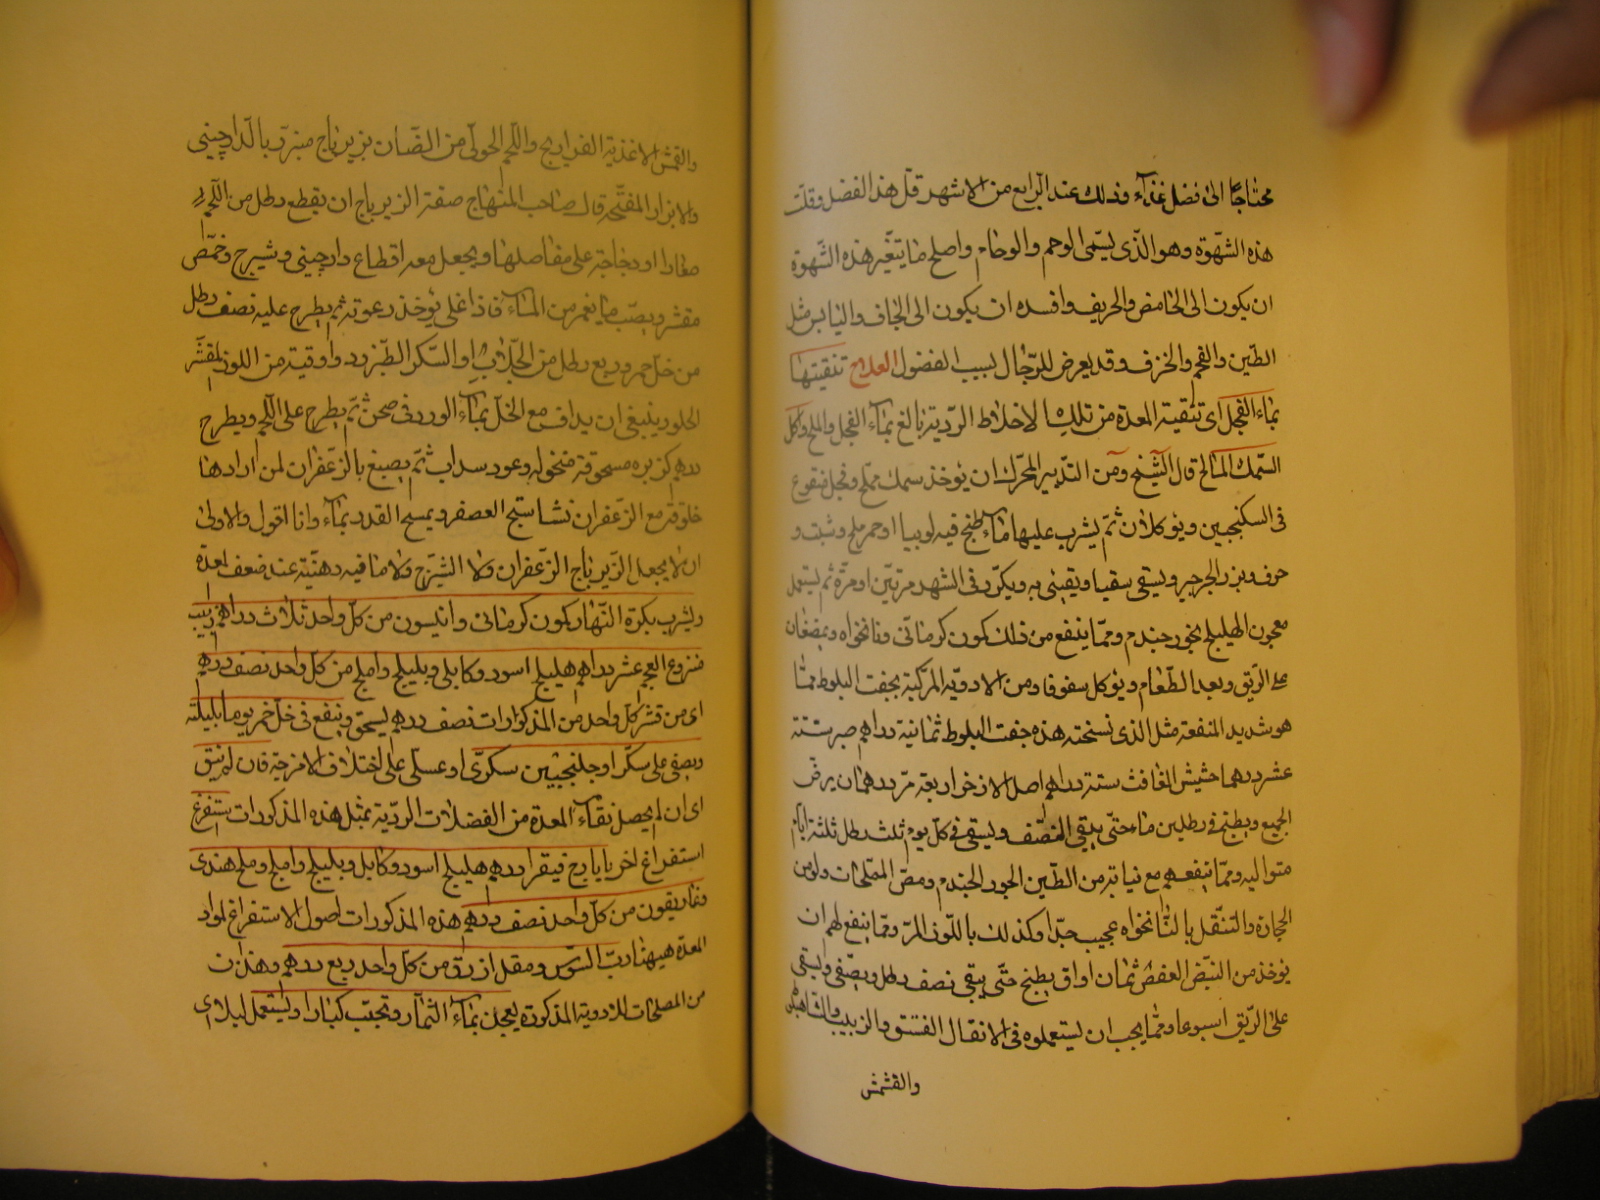 محتاجا الى فضل غذاء وذلك عند الرابع من الاشهر قل هذا الفضل وقلت
هذه الشهوة وهو الذى يسمى الوحم والوحام واصلح ما يتغير هذه الشهوة
ان يكون الى الحامض والحريف وافسده ان يكون الى الجاف واليابس مثل
الطين والفحم والخزف وقد يعرض للرجال بسبب الفضول العلاج تنقيتها
بماء الفجل اى تنقية المعدة من تلك الاخلاط الردية بالغ بماء الفجل والملح واكل
السمك المالح قال الشيخ ومن التدبير المحرك ان يوخذ سمك مملح وفجل منقوع
فى السكنجبين ويوكلان ثم يشرب عليها ماء طبخ فيه لوبيا احمر وملح وشبت و
حرف وبزر الجرجير ويسقى سقيا ويقيئى به ويكرر فى الشهر مرتين او مرة ثم يستعمل
معجون الهليلج بخور جندم ومما ينفع من ذلك كمون كرمانى ونانخواه ويمضغان
على الريق وبعد الطعام ويوكل سفوفا ومن الادوية المركبة بجفت البلوط مما
هو شديد المنفعة مثل الذى نسخته هذه جفت البلوط ثمانية دراهم صبر ستة
عشر درهما حشيش الغافث ستة دراهم اصل الاذخر اربعة مر درهمان يرض
الجميع ويطبخ فى رطلين ماء حتى يبقى النصف ويسقى فى كل يوم ثلث رطل ثلثة ايام
متواليه ومما ينفعهم مع نيابته من الطين الجوز الجندم ومص المملحات ولو من
الحجارة والتنقل بالنانخواه عجيب جدا وكذلك باللوز المر ومما ينفع لهم ان
يوخذ من النبيذ العفص ثمان اواق يطبخ حتى يبقى نصف رطل ويصفى ويسقى
على الريق اسبوعا ومما يجب ان يستعملوه فى الانقال الفستق والزبيب والشاهبلوط
والقشمش
والقشمش الاغذية الفراريج واللحم الحولى من الضان بزيرباج مبزر بالدارچينى
والابزار المفتحة قال صاحب المنهاج صفة الزيرباج ان يقطع رطل من اللحم
صغارا او دجاجة على مفاصلها ويجعل معه اقطاع دارچينى وشيرج وحمص
مقشر ويصب ما يغمر من الماء فاذا غلى يوخذ رغوته ثم يطرح عليه نصف رطل
من خل خمر وربع رطل من الجلاب او السكر الطبرزد واوقية من اللوز المقشر
الحلو وينبغى ان يداف مع الخل بماء الورد فى صحن ثم يطرح على اللحم ويطرح
درهم كزبره مسحوقة منخوله وعود سداب ثم يصبغ بالزعفران لمن ارادها
خلوقة مع الزعفران نشاستج العصفر ويمسح القدر بماء وانا اقول والاولى
ان لا يجعل الزيرباج الزعفران ولا الشيرج ولا ما فيه دهنية عند ضعف المعدة
وليشرب بكرة النهار كمون كرمانى وانيسون من كل واحد ثلاث دراهم زبيب
منزوع العجم عشر دراهم هليلج اسود وكابلى وبليلج واملج من كل واحد نصف درهم
اى من قشر كل واحد من المذكورات نصف درهم يسحق وينقع فى خل خمر يوما بليلته
ويصفى على سكر او جلنجبين سكرى او عسلى على اختلاف الامزجة فان لم تنق
اى ان لم يحصل نقاء المعدة من الفضلات الردية بمثل هذه المذكورات يستفرغ
استفراغ اخر بايارج فيقرا درهم هليلج اسود وكابلى وبليلج واملج وملح هندى
وغاريقون من كل واحد نصف درهم هذه المذكورات اصول الاستفراغ لمواد
المعدة هيهنا رب السوس ومقل ازرق من كل واحد ربع درهم وهذان
من المصلحات للادوية المذكورة يعجن بماء الثمار وتحبب كبارا ويستعمل ليلا اى